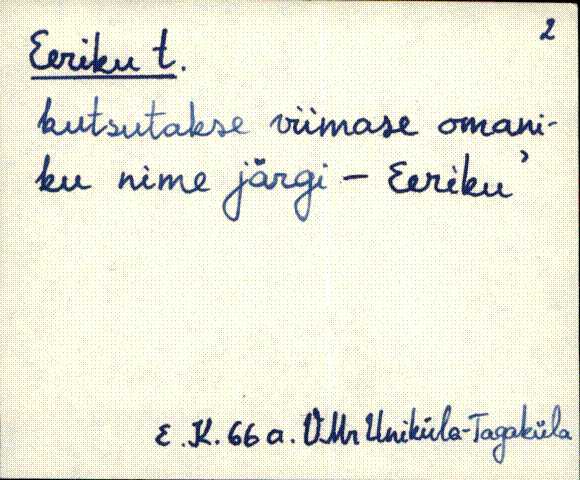 2
Eeriku t.
kutsutakse viimase omani-
ku nime järgi – Eeriku'
E. K. 66 a. VMr Uniküla-Tagaküla